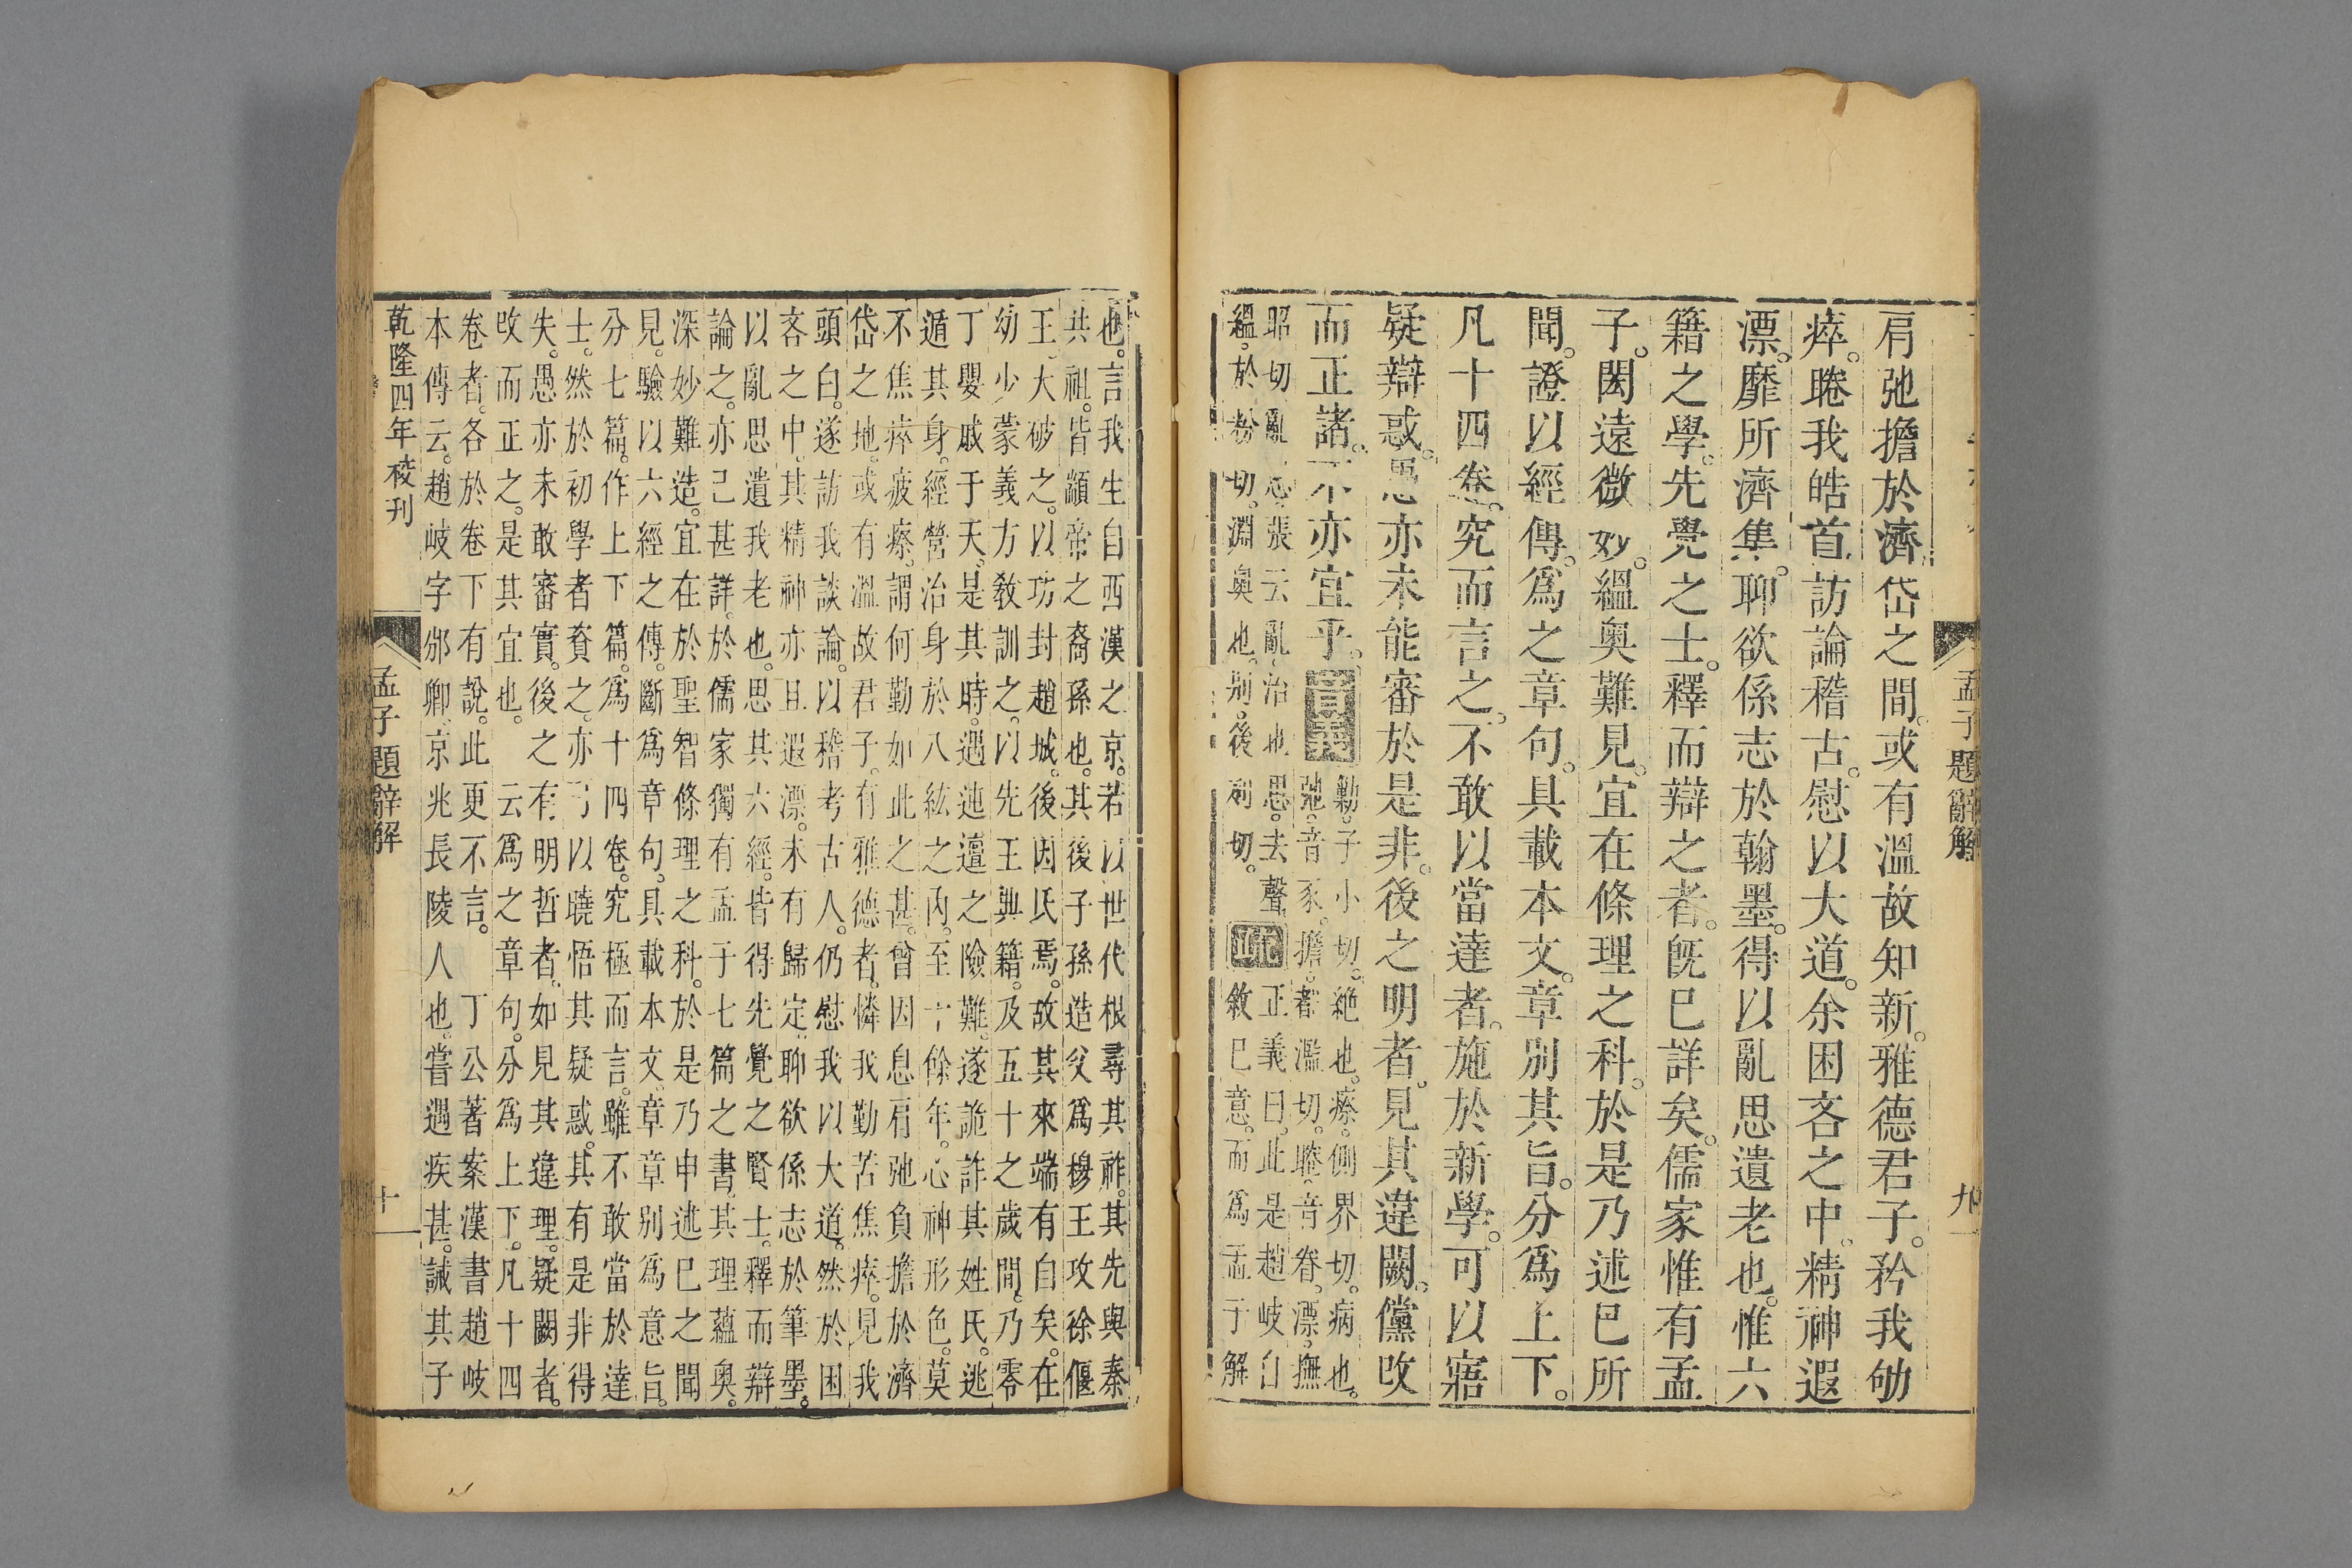 孟子題辭解
九
肩弛擔於濟岱之間。或有溫故知新。雅德君子。矜我劬
瘁。睠我皓首。訪論稽古。慰以大道。余困吝之中。精神遐
漂。靡所濟集。聊欲係志於翰墨。得以亂思遺老也。惟六
籍之學。先覺之士。釋而辯之者。旣已詳矣。儒家惟有孟
子。閎遠微妙。縕奧難見。宜在條理之科。於是乃述已所
聞。證以經傳。爲之章句。具載本文。章別其旨。分爲上下。
凡十四卷。究而言之。不敢以當達者。施於新學。可以寤
疑辯惑。愚亦未能審於是非。後之明者。見其違闕。儻改
而正諸。不亦宜乎。音義勦。子小切。絶也。瘵。側界切。病也。
弛。音豕。擔。都濫切。睠。音眷。漂。撫
昭切亂思張云亂。治也思。去聲。正義曰。此是趙岐自
縕。於粉切。淵奧也。別。後列切。疏正敘已意。而爲孟子解
也。言我生自西漢之京。若以世代根尋其祚。其先與秦
共祖。皆顓帝之裔孫也。其後子孫造父爲穆王攻徐偃
王。大破之。以功封趙城。後因氏焉。故其來端有自矣。在
幼少蒙義方敎訓之。以先王典籍。及五十之歲間。乃零
丁嬰戚于天。是其時。遇迍邅之險難。遂詭詐其姓氏。逃
遁其身。經營治身於八紘之內。至十餘年。心神形色。莫
不焦瘁疲瘵。謂何勤如此之甚。曾因息肩弛負擔於濟
岱之地。或有溫故君子。有雅德者。憐我勤苦焦瘁。見我
頭白。遂訪我談論。以稽考古人。仍慰我以大道。然於困
吝之中。其精神亦且遐漂。未有歸定。聊欲係志於筆墨。
以亂思遺我老也。思其六經。皆得先覺之賢士。釋而辯
論之。亦己甚詳。於儒家獨有孟子七篇之書。其理蘊奧。
深妙難造。宜在於聖智條理之科。於是乃申述已之聞
見。驗以六經之傳。斷爲章句。具載本文。章章別爲意旨。
分七篇。作上下篇。爲十四卷。究極而言。雖不敢當於達
士。然於初學者資之。亦可以曉悟其疑惑。其有是非得
失。愚亦未敢審實。後之有明哲者。如見其違理。疑闕者。
改而正之。是其宜也。云爲之章句。分爲上下。凡十四
卷者。各於卷下有說。此更不言。丁公著案漢書趙岐
本傳云。趙岐字邠卿。京兆長陵人也。嘗遇疾甚。誡其子
乾隆四年校刊
孟子題辭解
十